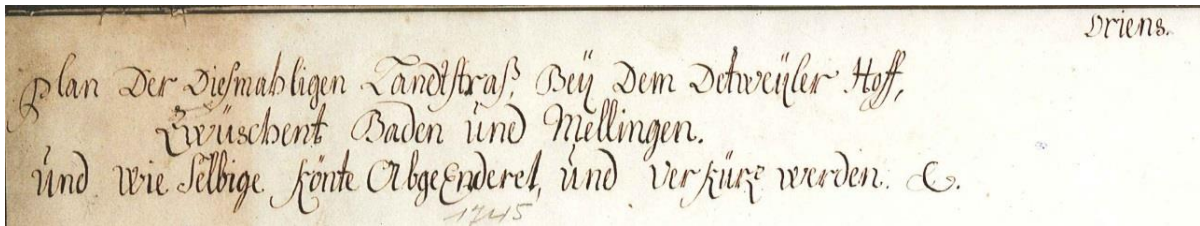 Oriens.
Plan Der Dießmahligen Landtstraß, Beÿ Dem Detweÿler Hoff,
Zwüschent Baden und Mellingen.
Und wie Selbige könte AbgeEnderet, und verkürzt werden. &.
1745